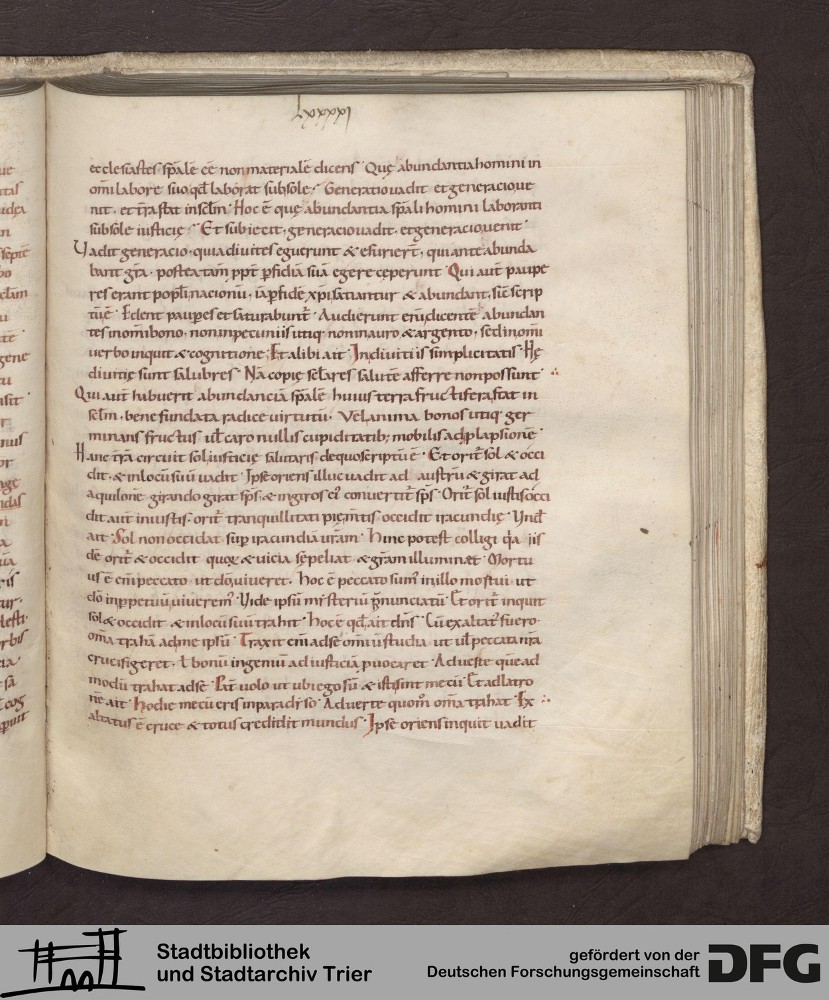 LXXXXI
ecclesiastes sp̄alē eē non materialē dicens · Quę abundantia homini in
om̄i labore suo, qd̄ laborat sub sole · Generatio uadit et generacio ue
nit · et tr̄a stat in sc̄lm · Hoc ē quę abundantia sp̄ali homini laboranti
sub sole iusticię · Et subiecit, generacio uadit · et generacio uenit ·
Vadit generacio · quia diuites eguerunt & esurier̄t, qui ante abunda
bant gr̄a · postea tam̄ ppt̄ pfidiā suā egere ceperunt · Qui aut̄ paupe
res erant popl̄i nacionū, iā p fidē xp̄i satiantur & abundant, sic̄ scrip
tū ē · Edent paupes et saturabunt̄ · Audierunt eni dicentē abundan
tes in om̄i bono · non in pecuniis utiq; non in auro & argento, sed in om̄i
uerbo inquit & cognitione; Et alibi ait · In diuitiis simplicitatis · Hę
diuitię sunt salubres · Nā copię sc̄lares salutē afferre non possunt ·
Qui aut̄ habuerit abundanciā sp̄alē huius terra fructifera stat in
sc̄lm · bene fundata radice uirtutū · Vel anima bonos utiq; ger
minans fructus ul̄ caro nullis cupiditatib; mobilis ad plapsionē ·
Hanc tr̄ā circuit sol iusticię salutaris de quo scriptū ē · Et orit̄ sol & occi
dit · & in locū suū uadit · Ipse oriens illuc uadit ad austrū & girat ad
aquilonē · girando girat sp̄s, & in giros ei' conuertit̄ sp̄s · Orit̄ sol iustis occi
dit aut̄ iniustis · orit̄ tranquillitati occidit iracundię · Vnd̄
ait · Sol non occidat sup iracundiā urām · Hinc potest colligi qa iis
dē orit̄ & occidit quoȝ & uicia sepeliat & gr̄am illuminet · Mortu
us ē eni peccato · ut dō uiueret · hoc ē peccato sum' in illo mortui · ut
dō in ppetuū uiuerem' · Vide ipsū misteriū pnunciatū · Et orit̄ inquit
sol & occidit & in locū suū trahit · Hoc ē qd̄ ait dn̄s · Cū exaltat' fuero ·
om̄a trahā ad me ipsū · Traxit eni ad se om̄iū studia · ut ul̄ peccata nr̄a
crucifigeret · ł bonū ingeniū ad iusticiā puocaret · Aduerte quē ad
modū trahat ad se · Pat̄ uolo ut ubi ego sū & isti sint mecū · Et ad latro
nē ait · Hodie mecū eris in paradiso · Aduerte quom̄ om̄a trahat · Ex
altatus ē cruce & totus credidit mundus · Ipse oriens inquit uadit
Stadtbibliothek
und Stadtarchiv Trier
gefördert von der
Deutschen Forschungsgemeinschaft
DFG